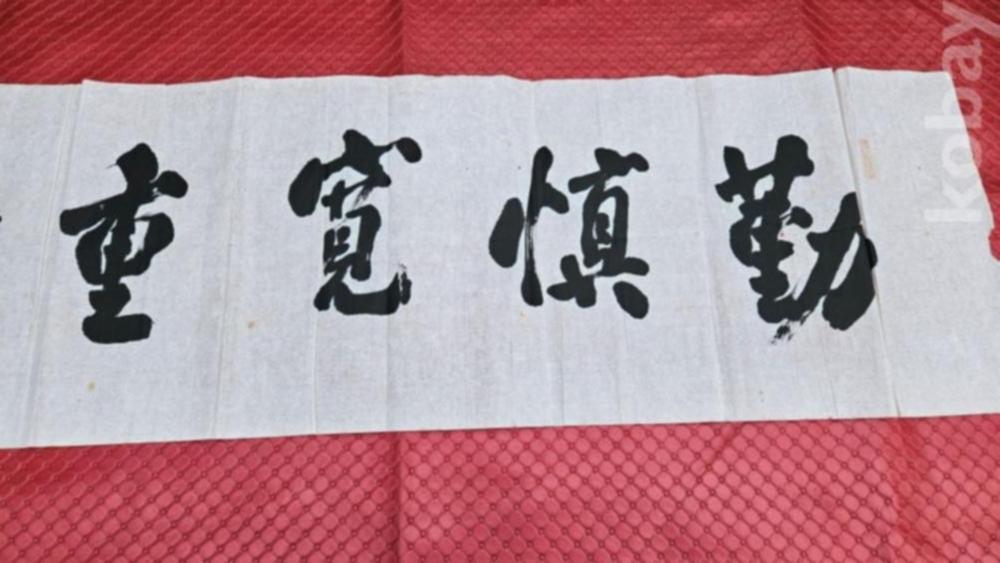 勤慎寬重
kobay